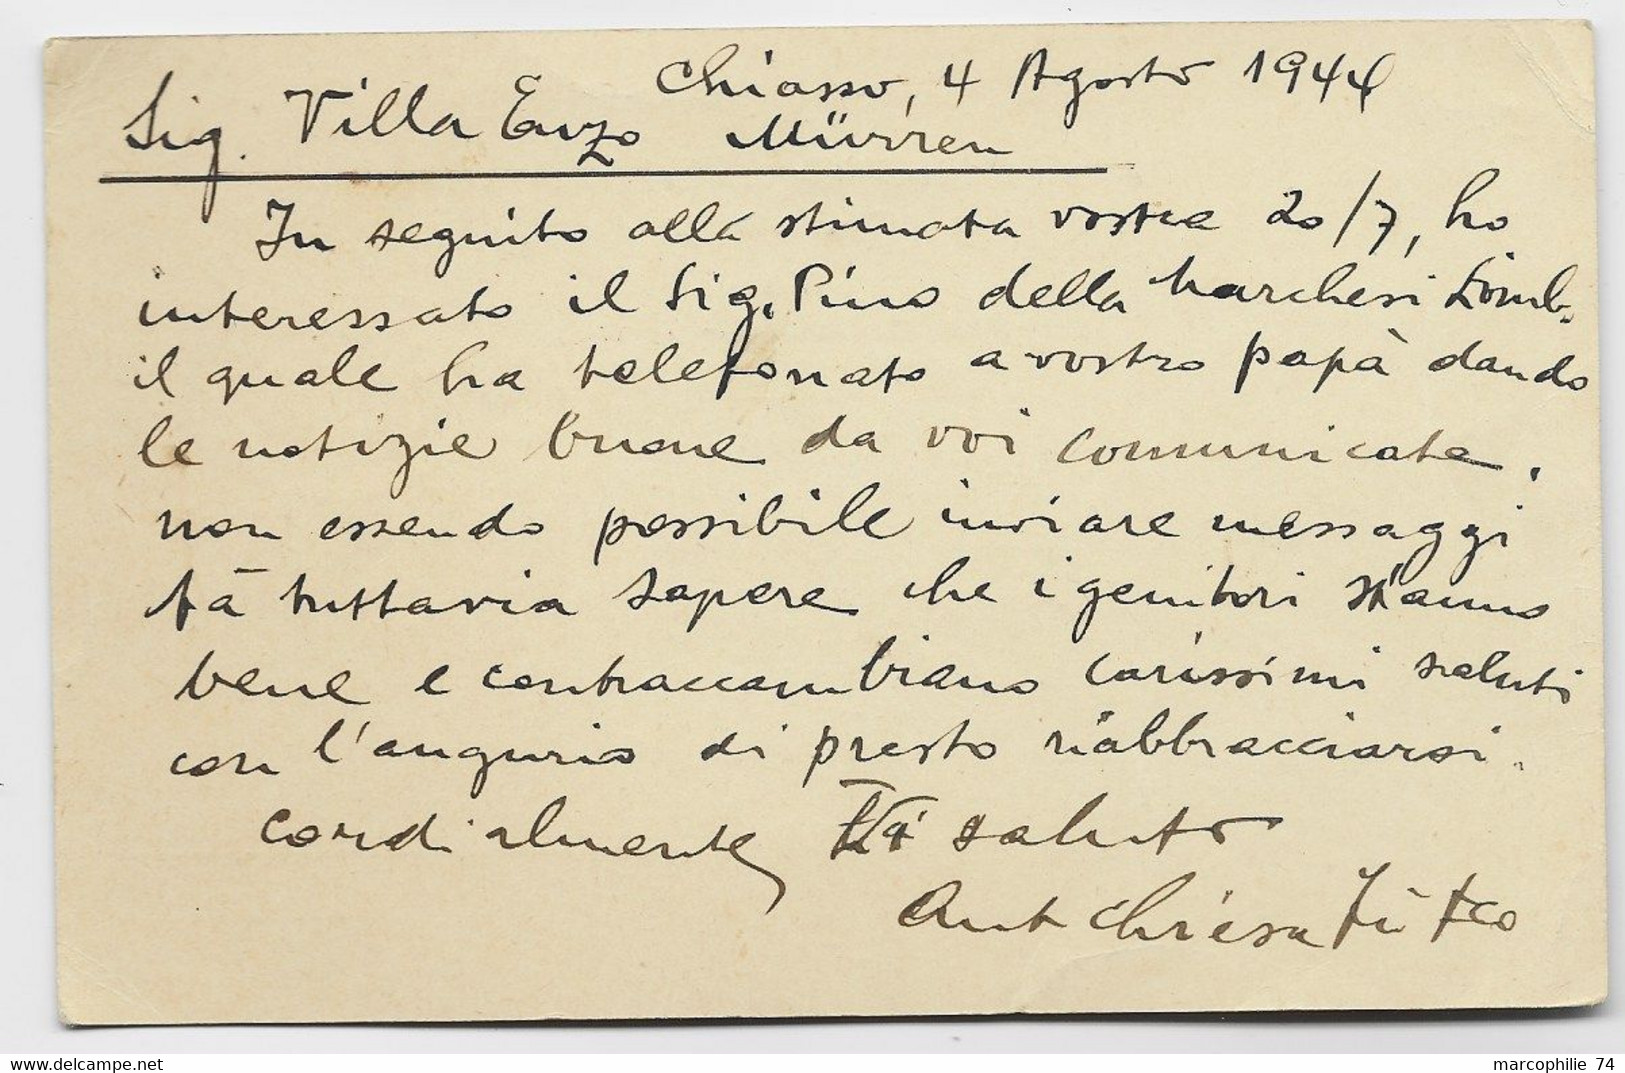 Chiasso, 4 Agosto 1944
Sig. Villa Enzo Mürren
In seguito alla stimata vostra 20/7, ho
interessato il Sig. Pino della Marchesi Lomb.
il quale ha telefonato a vostro papà dando
le notizie buone da voi comunicate.
non essendo possibile inviare messaggi
fà tuttavia sapere che i genitori stanno
bene e contraccambiano carissimi saluti
con l'augurio di presto riabbracciarsi.
Cordialmente Vi saluto
Ant Chiesa fù Fco
marcophilie 74